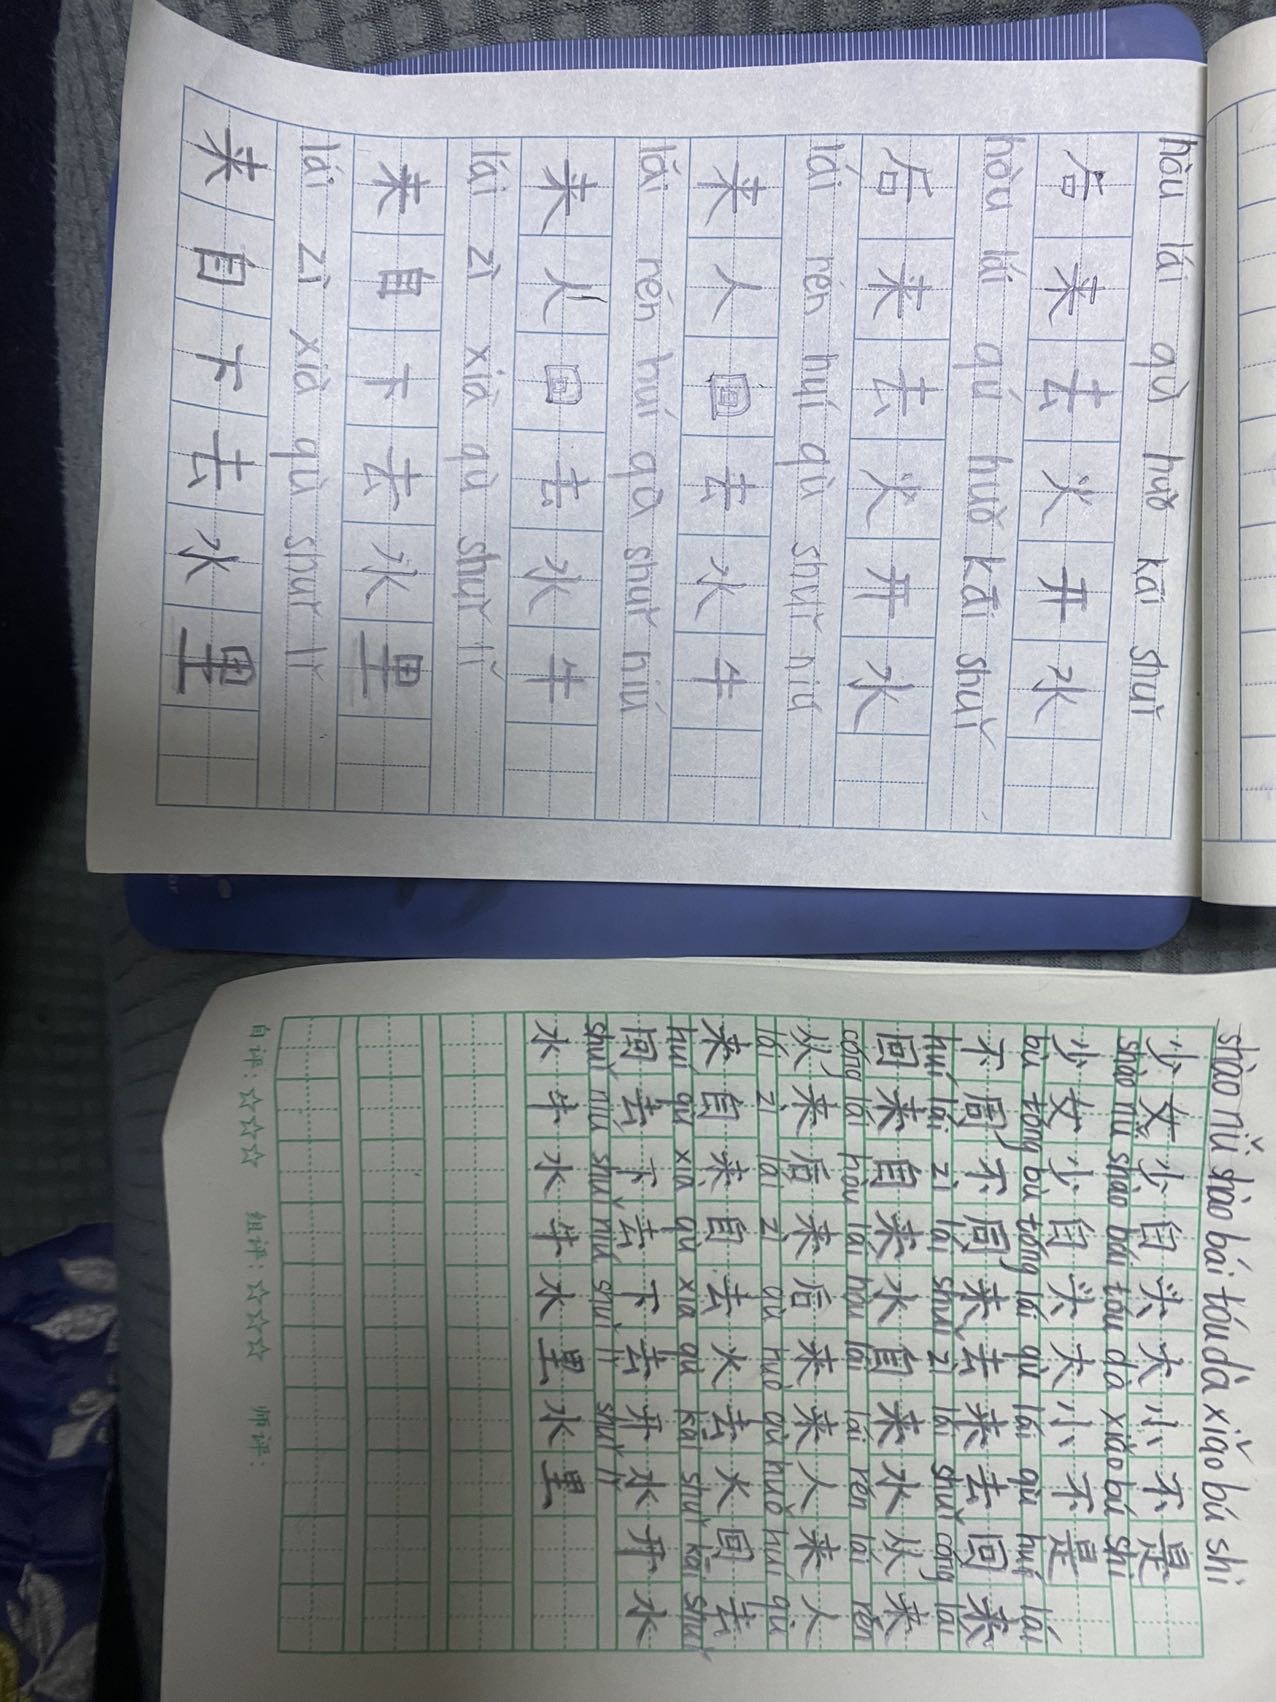 hòu lái qù huǒ kāi shuǐ
后来去火开水
hòu lái qù huǒ kāi shuǐ
后来去火开水
lái rén huí qù shuǐ niú
来人回去水牛
lái rén huí qù shuǐ niú
来人回去水牛
lái zì xià qù shuǐ lǐ
来自下去水里
lái zì xià qù shuǐ lǐ
来自下去水里
shào nǚ shào bái tóu dà xiǎo bú shì
少女少白头大小不是
shào nǚ shào bái tóu dà xiǎo bú shì
少女少白头大小不是
bù tóng bù tóng lái qù lái qù huí lái
不同不同来去来去回来
huí lái zì lái shuǐ zì lái shuǐ cóng lái
回来自来水自来水从来
cóng lái hòu lái hòu lái lái rén lái rén
从来后来后来来人来人
lái zì lái zì qù huǒ qù huǒ huí qù
来自来自去火去火回去
huí qù xià qù xià qù kāi shuǐ kāi shuǐ
回去下去下去开水开水
shuǐ niú shuǐ niú shuǐ lǐ shuǐ lǐ
水牛水牛水里水里
自评：☆☆☆ 组评：☆☆☆ 师评：